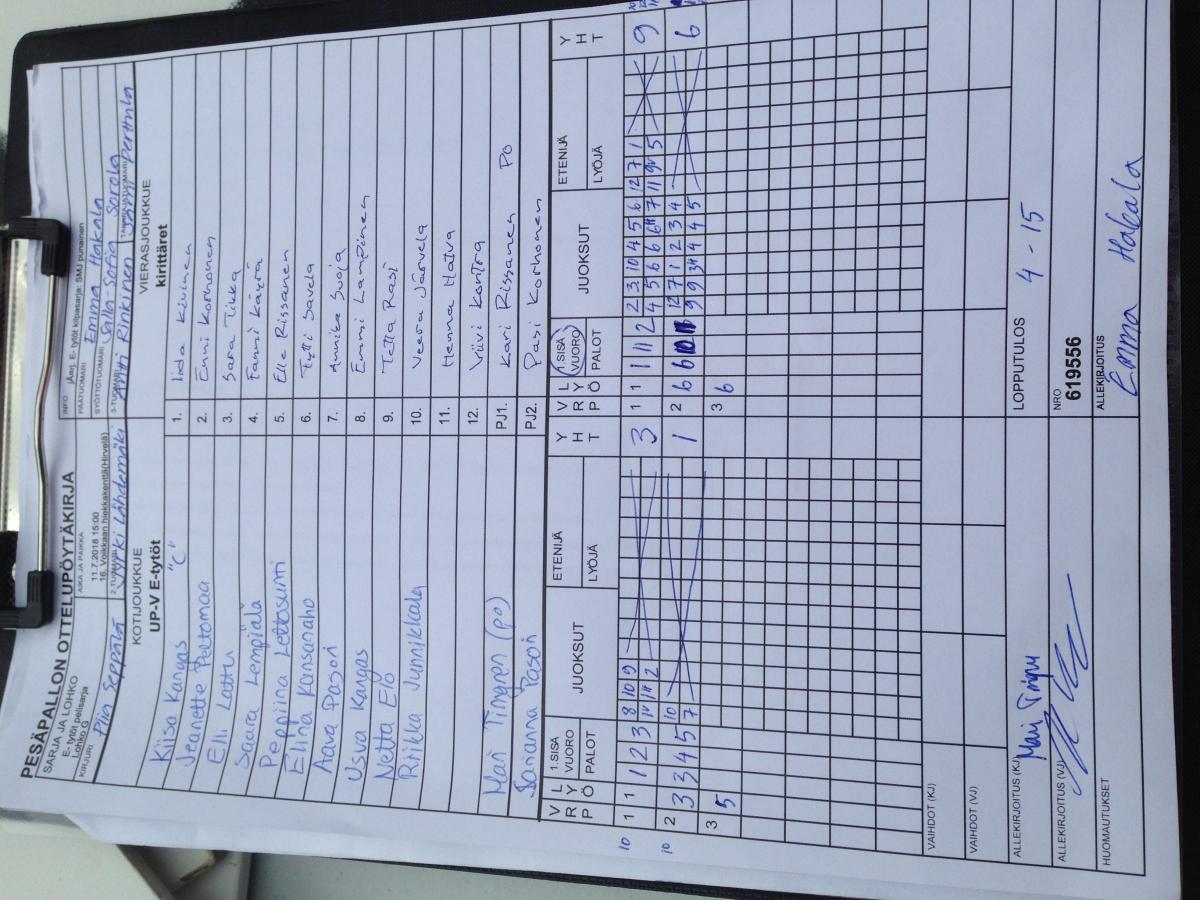 PESÄPALLON OTTELUPÖYTÄKIRJA
SARJA JA LOHKO
E- tytöt pelisarja
Lohko G
AIKA JA PAIKKA
11.7.2018 15:00
16. Voikkaan hiekkakenttä(Hirvelä)
INFO
E-tytöt kilpasarja: SMJ punainen
PÄÄTUOMARI
Emma Hakala
SYÖTTÖTUOMARI
Salla-Sofia Sarola
KIRJURI
Piia Seppälä
2-TUOMARI
Jyrki Lähdemäki
3-TUOMARI
Antti Rinkinen
KOTIJOUKKUE
UP-V E-tytöt
VIERASJOUKKUE
kirittäret
Kiisa Kangas "C"
1.
Iida Kivinen
Jeanette Peltomaa
2.
Enni Korhonen
Elli Lattu
3.
Sara Tikka
Saara Lempiälä
4.
Fanni Käyrä
Peppiina Lettosunti
5.
Elle Rissanen
Elina Kansanaho
6.
Tytti Savela
Aava Pasori
7.
Annika Suoja
Usva Kangas
8.
Emmi Lampinen
Netta Elo
9.
Tetta Rasi
Riikka Junnikkala
10.
Veera Järvelä
11.
Henna Hatva
12.
Viivi Kantra
Mari Tingren (po)
PJ1.
Kari Rissanen PO
Sananna Pasori
PJ2.
Pasi Korhonen
V R P
L Y Ö
1.SISÄ VUORO
PALOT
JUOKSUT
ETENIJÄ
LYÖJÄ
Y H T
V R P
L Y Ö
1.SISÄ VUORO
PALOT
JUOKSUT
ETENIJÄ
LYÖJÄ
Y H T
10 1 1 1 2 3 8 10 9 3
14 14 2
1 1 1 11 2 2 3 10 4 5 6 12 7 1 9
10 2 3 3 4 5 10 1
7
2 6 12 7 1 2 3 4 6
3 5
3 6
VAIHDOT (KJ)
VAIHDOT (VJ)
ALLEKIRJOITUS (KJ)
Mari Tingren
LOPPUTULOS
4 - 15
ALLEKIRJOITUS (VJ)
NRO
619556
HUOMAUTUKSET
ALLEKIRJOITUS
Emma Hakala